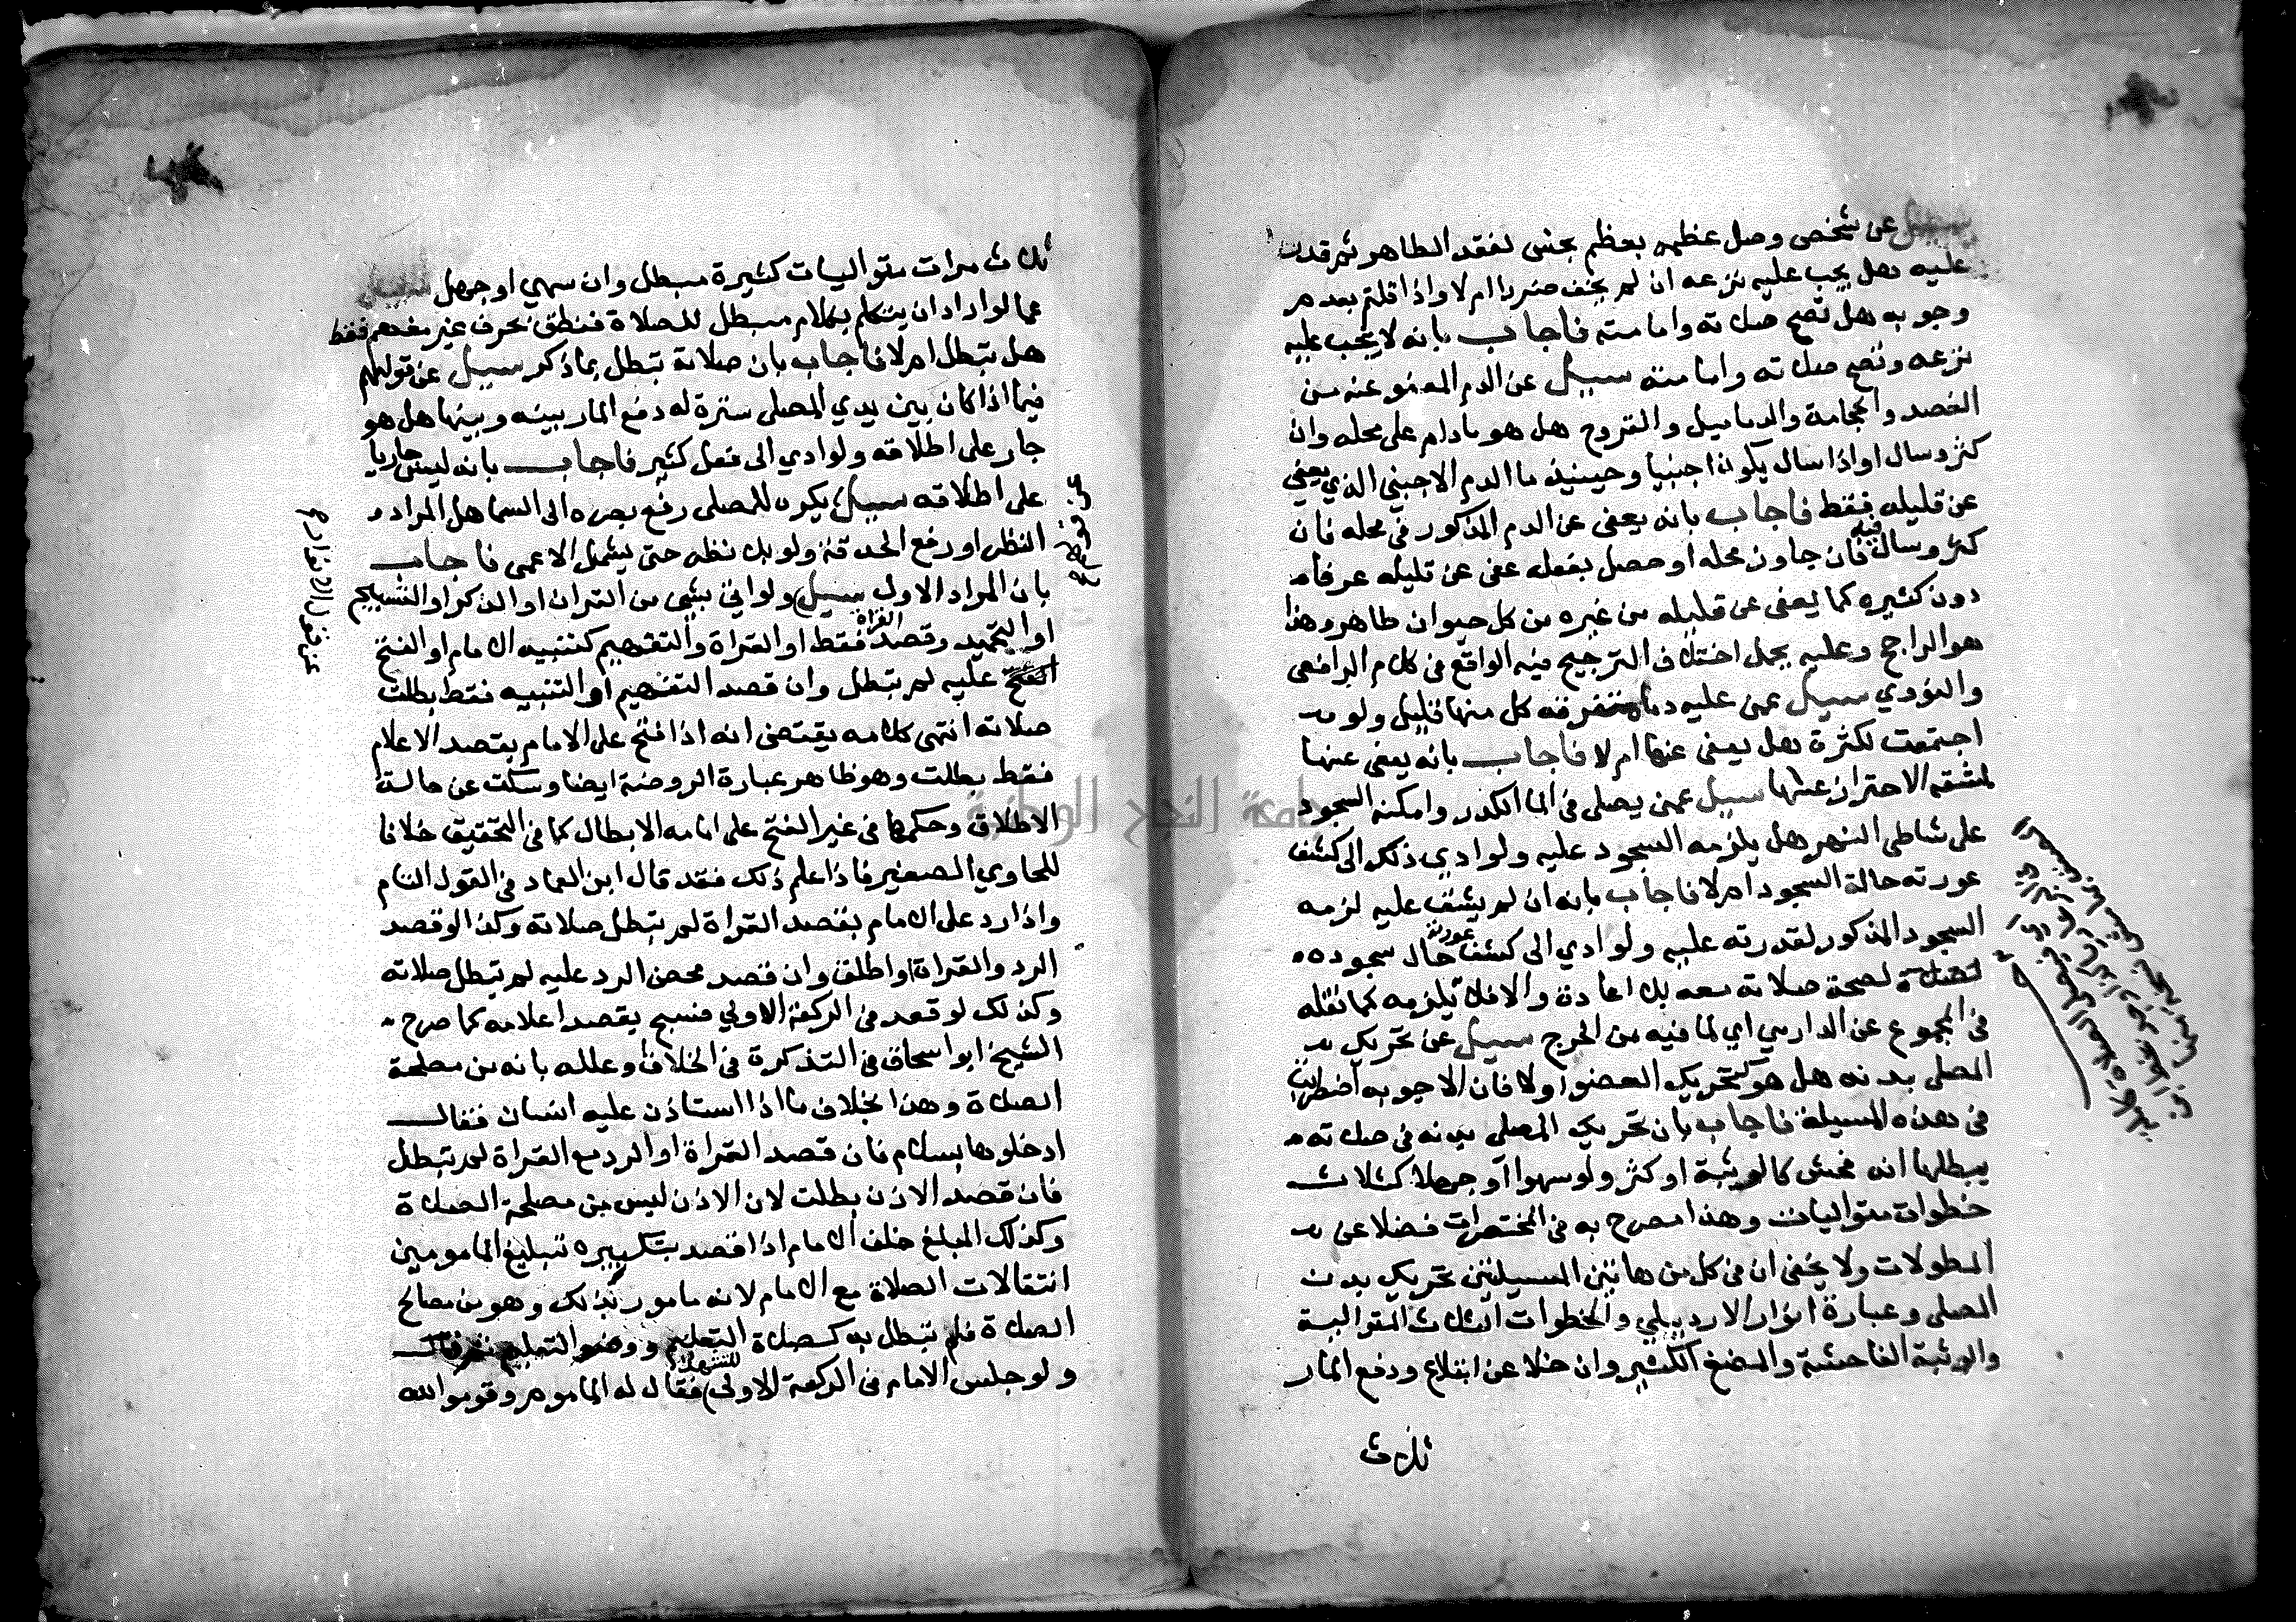 سييل عن شخص وصل عظمه بعظم نجس لفقد الطاهر ثم قدر
عليه هل يجب عليه نزعه ان لم يخف ضررا ام لا واذا قلتم بعدم
وجوبه هل تصح صلاته وامامته فاجاب بانه لا يجب عليه
نزعه وتصح صلاته وامامته سييل عن الدم المعفو عنه من
الفصد والحجامة والدماميل والقروح هل هو مادام على محله وان
كثر وسال او اذا سال يكون اجنبيا وحينيذ ما الدم الاجنبي الذي يعفى
عن قليله فقط فاجاب بانه يعفى عن الدم المذكور في محله فان
كثر وسال فيه فان جاوز محله او حصل بفعله عفى عن قليله عرفا
دون كثيره كما يعفى عن قليله من غيره من كل حيوان طاهر وهذا
هو الراجح وعليه يحمل اختلاف الترجيح فيه الواقع في كلام الرافعى
والنووي سييل عمن عليه دما متفرقه كل منها قليل ولو
اجتمعت لكثرة هل يعفى عنها ام لا فاجاب بانه يعفى عنها
لمشقه الاحتراز عنها سييل عمن يصلى في الما الكدر وامكنه السجود
على شاطى النهر هل يلزمه السجود عليه ولو ادي ذلك الى كشف
عورته حالة السجود ام لا فاجاب بانه ان لم يشق عليه لزمه
السجود المذكور لقدرته عليه ولو ادي الى كشف عورته حال سجوده
لصحة صلاته معه بلا اعادة والا فلا يلزمه كما نقله
في المجموع عن الدارمي اي لما فيه من الحرج سييل عن تحريك
المصلى بدنه هل هو كتحريك العضو او لا فان الاجوبه اضطربت
في هذه المسيلة فاجاب بان تحريك المصلى بدنه في صلاته
يبطلها انه فحش كالوثبة او كثر ولو سهوا او جهلا كثلاث
خطوات متواليات وهذا مصرح به في المختصرات فضلا عن
المطولات ولا يخفى ان في كل من هاتين المسيلتين تحريك بدن
المصلى وعبارة انوار الاردبيلي والخطوات الثلاث المتوالية
والوثبة الفاحشة والمضغ الكثير وان خلا عن ابتلاع ودفع المار
ثلاث
ثلاث مرات متواليات كثيرة مبطل وان سهي او جهل سييل
عما لو اراد ان يتكلم بكلام مبطل للصلاة فنطق بحرف غير مفهم فقط
هل تبطل ام لا فاجاب بان صلاته تبطل بما ذكر سييل عن قولهم
فيما اذا كان بين يدي المصلى سترة له دفع المار بينه وبينها هل هو
جار على اطلاقه ولو ادي الى فعل كثير فاجاب بانه ليس جاريا
على اطلاقه سييل يكره للمصلى رفع بصره الى السما هل المراد
النظر او رفع الحدقة ولو بلا نظر حتى يشمل الاعمى فاجاب
بان المراد الاول سييل ولو اتى بشي من القران او الذكر او التسبيح
او التحميد وقصد القراة فقط او القراة والتفهيم كتنبيه الامام او الفتح
عليه لم تبطل وان قصد التفهيم او التنبيه فقط بطلت
صلاته انتهى كلامه يقتضى انه اذا فتح على الامام بقصد الاعلام
فقط بطلت وهو ظاهر عبارة الروضة ايضا وسكت عن حالة
الاطلاق وحكمها في غير الفتح على امامه الابطال كما في التحقيق خلافا
للحاوي الصغير فاذا علم ذلك فقد قال ابن العماد في القول التام
واذا رد على الامام بقصد القراة لم تبطل صلاته وكذا لو قصد
الرد والقراة او اطلق وان قصد محض الرد عليه لم تبطل صلاته
وكذلك لو قعد في الركعة الاولي فسبح يقصد اعلامه كما صرح
الشيخ ابو اسحاق في التذكرة في الخلاف وعلله بانه من مصلحة
الصلاة وهذا بخلاف ما اذا استاذن عليه انسان فقال
ادخلوها بسلام فان قصد القراة او الرد مع القراة لم تبطل
فان قصد الاذن بطلت لان الاذن ليس من مصلحة الصلاة
وكذلك المبلغ خلف الامام اذا قصد بتكبيره تبليغ المامومين
انتقالات الصلاة مع الامام لانه مامور بذلك وهو من مصالح
الصلاة فلم تبطل به كصلاة التعليم ووضو التعليم ثم قال
ولو جلس الامام في الركعة الاولى للتشهد فقال له الماموم وقوموا لله
جامعة النجاح الوطنية